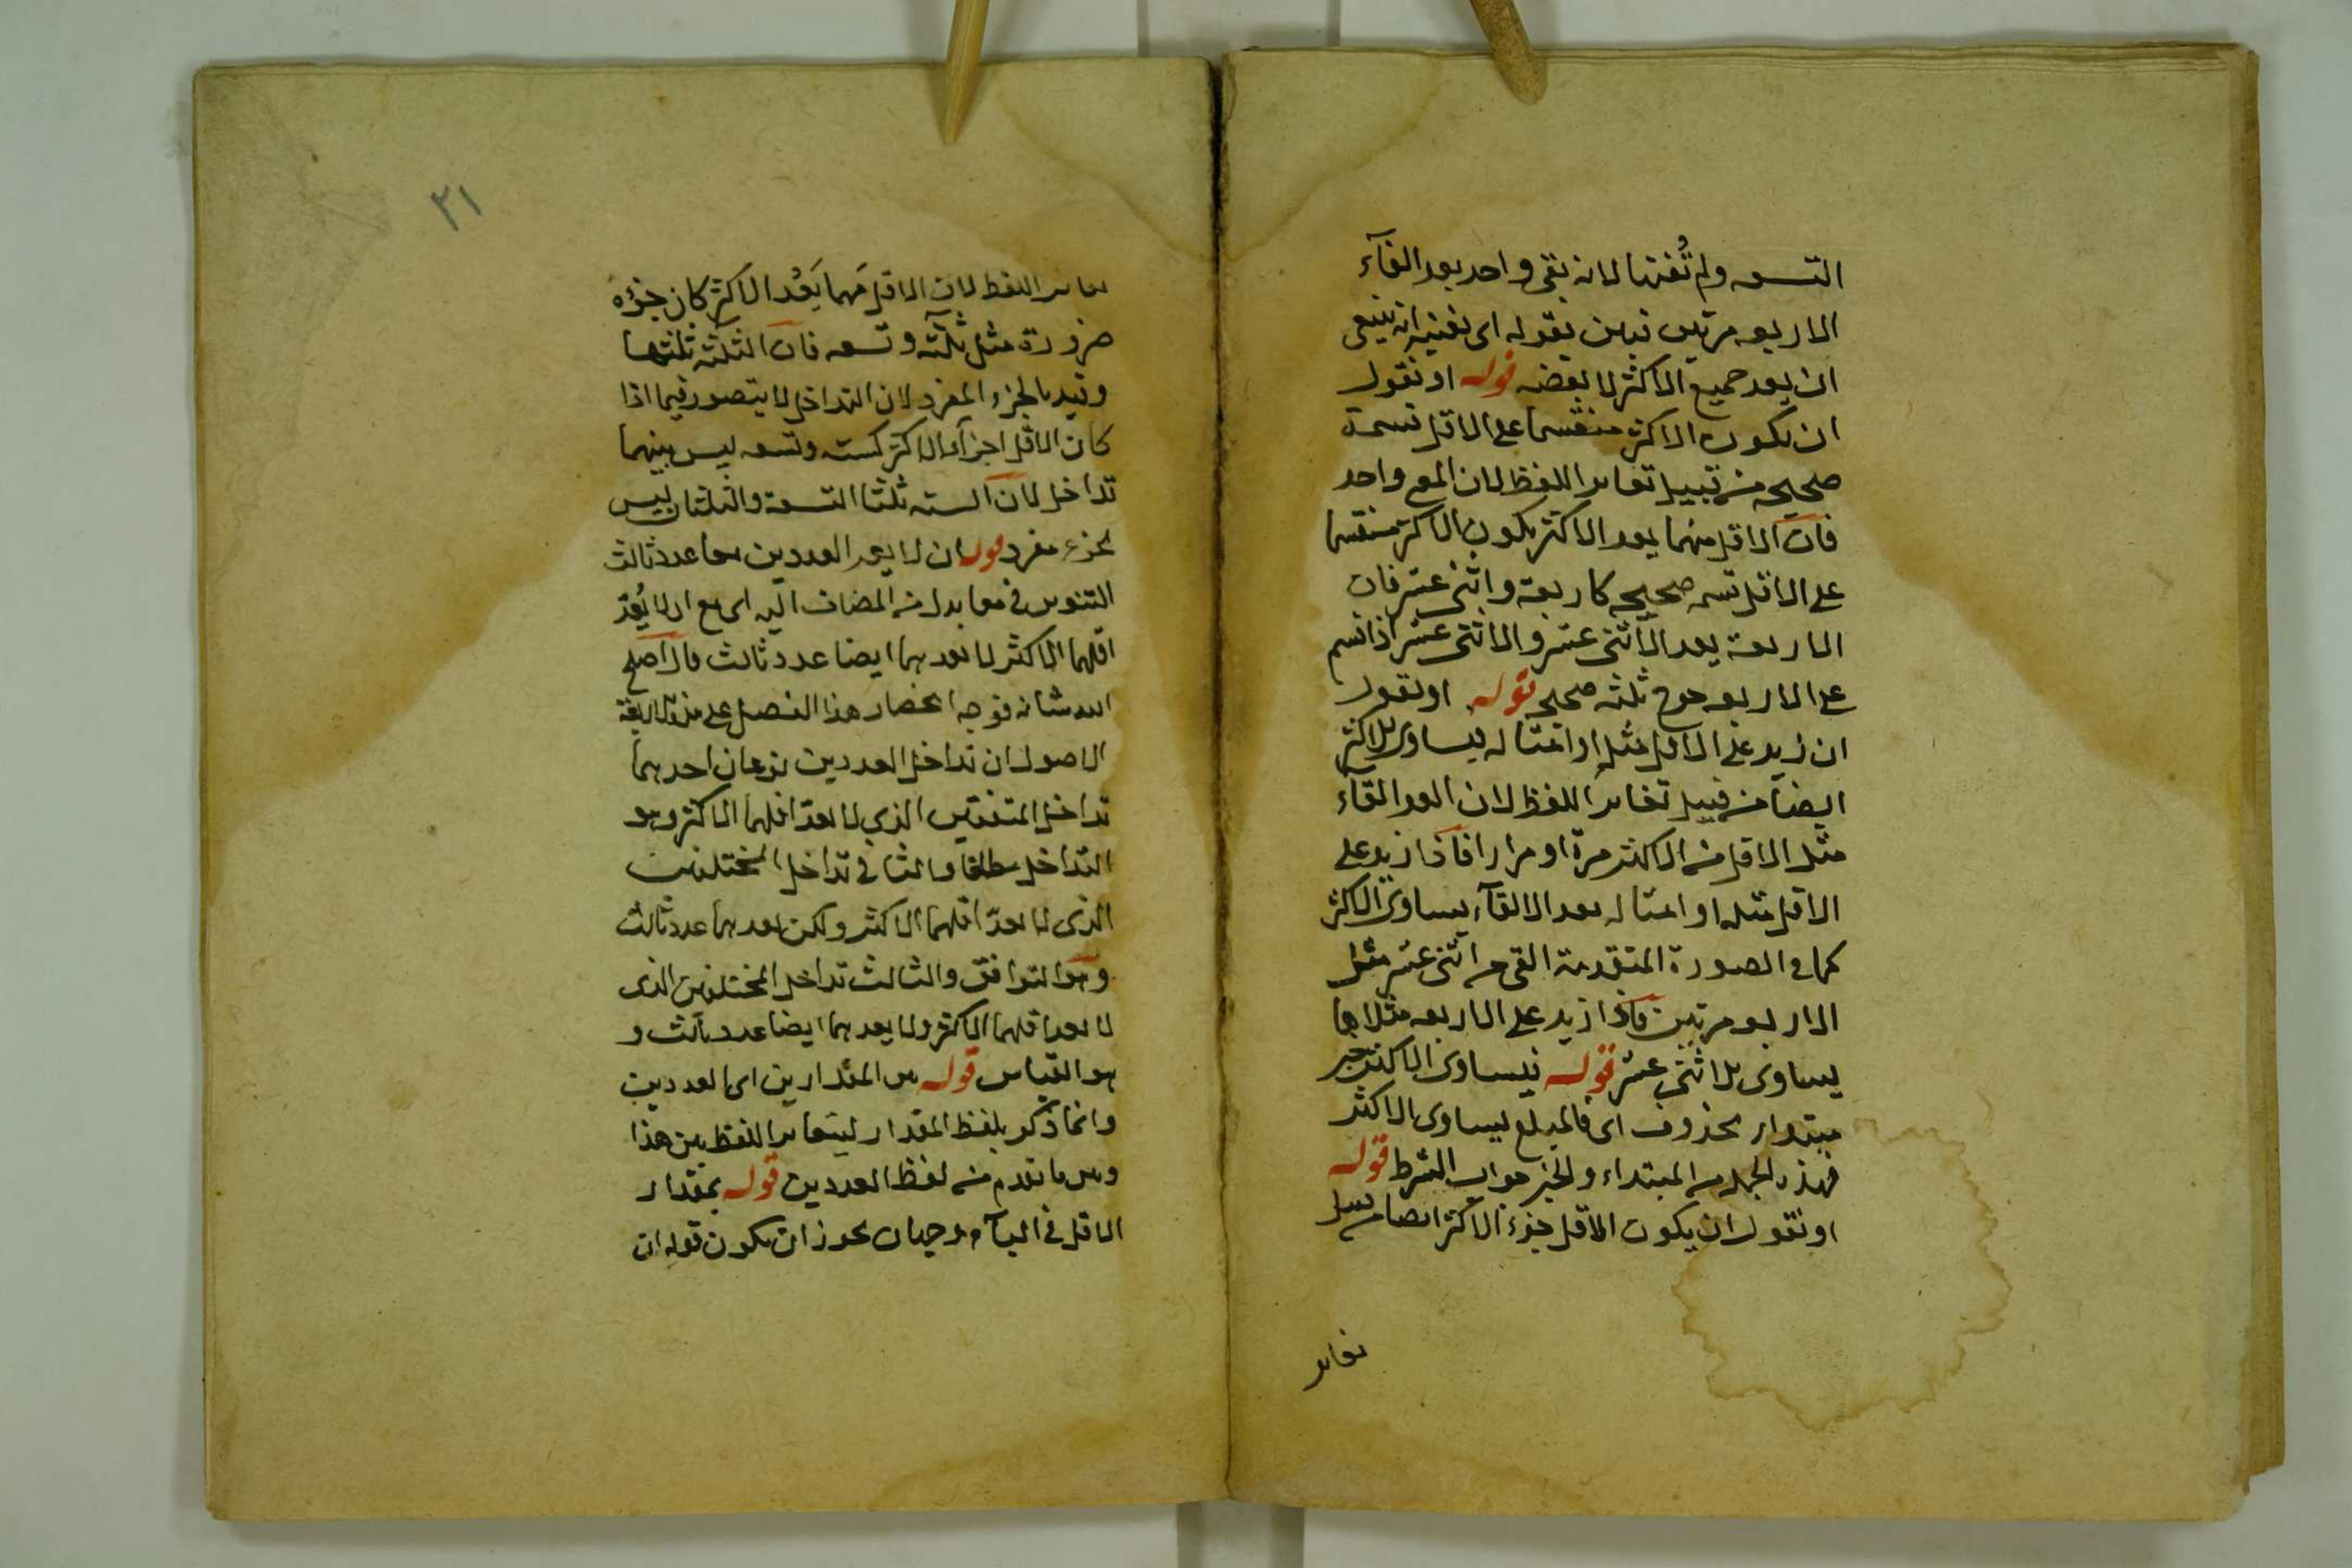 التسعه ولم تُفنها لانه بقى واحد بعد القآء
الاربعه مرتين تبين بقوله اى يفنيه انه ينبغى
ان يعد جميع الاكثر لا بعضه قوله او نقول
ان يكون الاكثر منقسما على الاقل قسمة
صحيحه من قبيل تغاير اللفظ لان المع واحد
فان الاقل منهما يعد الاكثر يكون الاكثر منقسما
على الاقل قسمه صحيحه كاربعة واثنى عشر فان
الاربعة يعد الاثنى عشر والاثنى عشر اذا قسم
على الاربعه خرج ثلثه صحيح قوله او نقول
ان زيد على الاقل مثله او امثاله يساوى الاكثر
ايضا من قبيل تغاير اللفظ لان العد القآء
مثل الاقل من الاكثر مرة او مرارا فاذا زيد على
الاقل مثله او امثاله بعد الالقآء يساوى الاكثر
كما فى الصورة المتقدمة القى من اثنى عشر مثل
الاربعه مرتين فاذا زيد على الاربعه مثلاها
يساوى الاثنى عشر قوله فيساوى الاكثر خبر
مبتداء محذوف اى فالمبلغ يساوى الاكثر
فهذه الجمله من المبتداء والخبر جواب الشرط قوله
او نقول ان يكون الاقل جزء الاكثر ايضا من قبيل
تغاير
٢١
تغاير اللفظ لان الاقل مهما يَعُد الاكثر كان جزؤه
ضرورة مثل ثلثه وتسعه فان الثلثه ثلثها
وقيد بالجزء المفرد لان التداخل لا يتصور فيما اذا
كان الاقل اجزآء الاكثر كسته وتسعه ليس بينهما
تداخل لان السته ثلثا التسعة والثلثان ليس
بجزء مفرد قوله ان لا يعد العددين معا عدد ثالث
التنوين فى معا بدل من المضاف اليه اى مع ان لا يُعدّ
اقلهما الاكثر لا يعدهما ايضا عدد ثالث قال اصلح
الله شانه فوجه انحصار هذا الفصل على هذه الاربعة
الاصول ان تداخل العددين نوعان احدهما
تداخل المتفقين الذى لا يعدّ اقلهما الاكثر وهو
التداخل مطلقا والثانى تداخل المختلفين
الذى لا يعدّ اقلهما الاكثر ولكن يعدهما عدد ثالث
وهو التوافق والثالث تداخل المختلفين الذى
لا يعد اقلهما الاكثر ولا يعدهما ايضا عدد ثالث و
هو التباين قوله من المقدارين اى العددين
وانما ذكر بلفظ المقدار ليتغاير اللفظ بين هذا
وبين ما تقدم من لفظ العددين قوله بمقدار
الاقل فى البآء وجهان يجوز ان يكون قوله ان